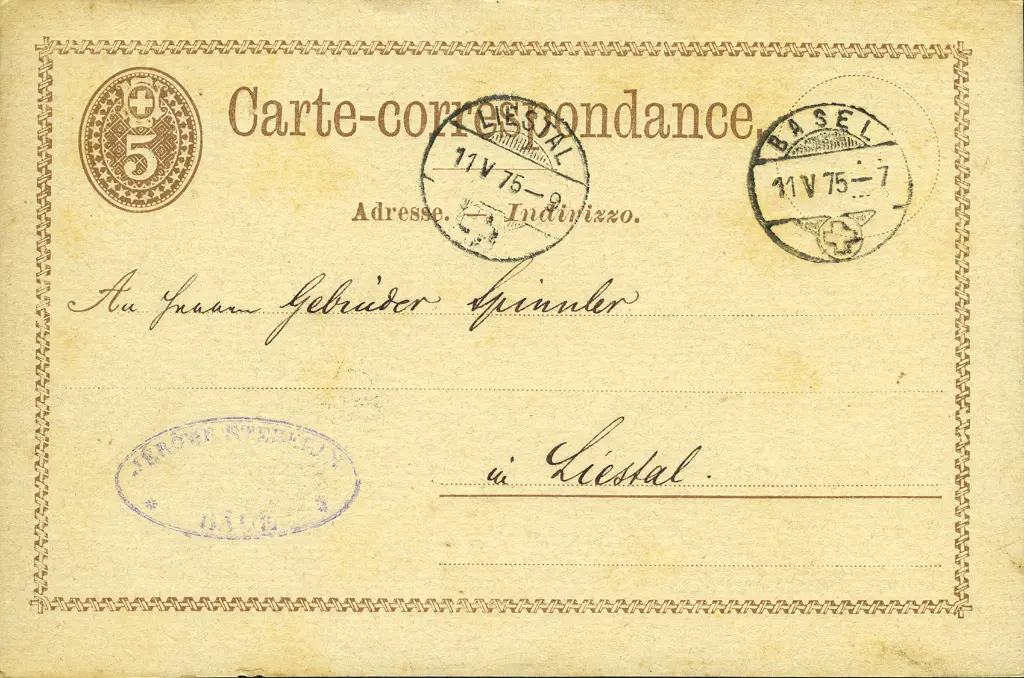 5
Carte-correspondance.
LIESTAL
11 V 75-9
BASEL
11 V 75-7
Adresse. — Indirizzo.
An Herren Gebrüder Spinnler
in Liestal.
JÉRÔME
BÂLE